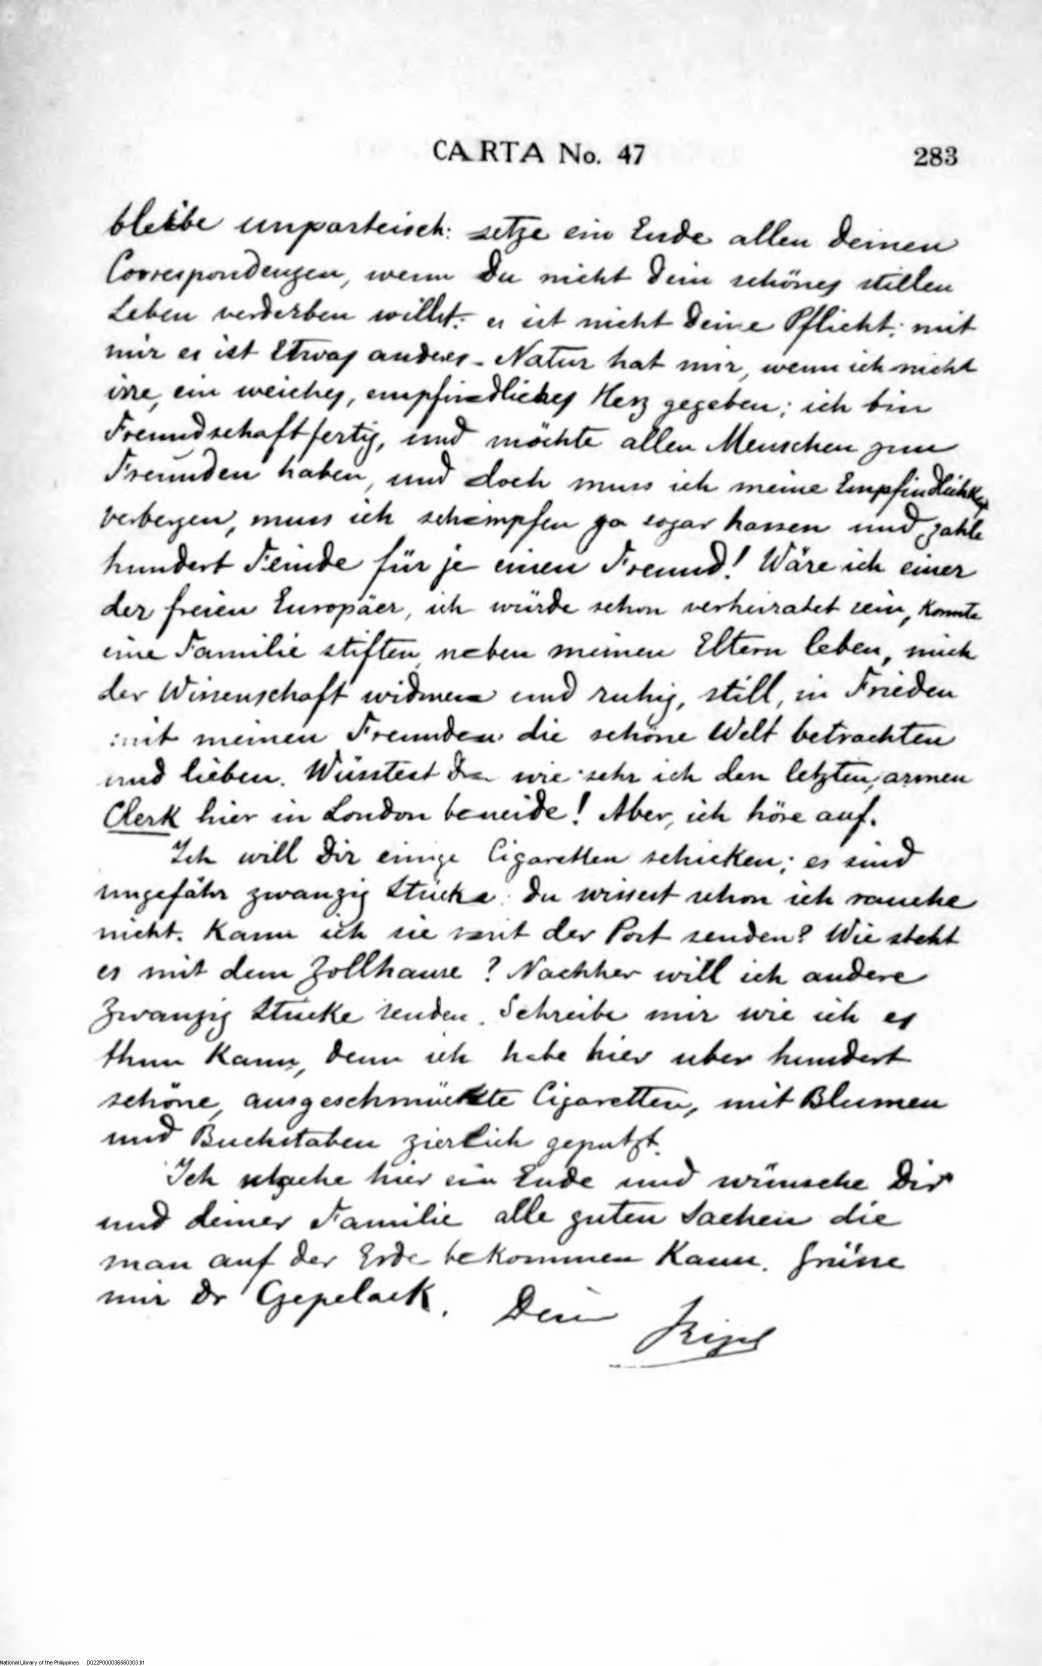 CARTA No. 47 283
bleibe unparteisch: setze ein Ende allen deinen
Correspondenzen, wenn Du nicht dein schönes stillen
Leben verderben willst: es ist nicht deine Pflicht: mit
mir es ist Etwas anderes - Natur hat mir, wenn ich nicht
irre, ein weiches, empfindliches Herz gegeben; ich bin
Freundschaftfertig, und möchte allen Menschen zum
Freunden haben, und doch muss ich meine Empfindlichkeit
verbergen, muss ich schimpfen ja sogar hassen und zahle
hundert Feinde für je einen Freund! Wäre ich einer
der freien Europäer, ich würde schon verheiratet sein, konnte
eine Familie stiften neben meinen Eltern leben, mich
der Wissenschaft widmen und ruhig, still, in Frieden
mit meinen Freunden die schöne Welt betrachten
und lieben. Wüsstest Du wie sehr ich den letzten, armen
Clerk hier in London beneide! Aber, ich höre auf.
Ich will Dir einige Cigaretten schicken; es sind
ungefähr zwanzig Stücke: du wissest schon ich rauche
nicht. Kann ich sie mit der Post senden? Wie steht
es mit dem Zollhause? Nachher will ich andere
zwanzig Stücke senden. Schreibe mir wie ich es
thun kann, denn ich habe hier uber hundert
schöne, ausgeschmückte Cigaretten, mit Blumen
und Buchstaben zierlich geputzt.
Ich mache hier ein Ende und wünsche Dir
und deiner Familie alle guten Sachen die
man auf der Erde bekommen kann. Grüsse
mir Dr Czepelack. Dein
Rizal
National Library of the Philippines